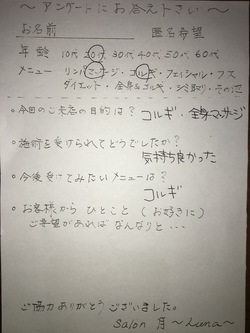 ～アンケートにお答え下さい～
お名前 匿名希望
年齢 10代 20代 30代 40代 50代 60代
メニュー リンパマッサージ・コルギ・フェイシャル・フス
ダイエット・全身&コルギ・シミ取り・その他
○今回のご来店の目的は？ コルギ・全身マッサージ
○施術を受けられてどうでしたか？
気持ち良かった
○今後受けてみたいメニューは？
コルギ
○お客様から ひとこと（お好きに）
ご要望があれば なんなりと・・・
ご協力ありがとうございました。
Salon 月～Luna～